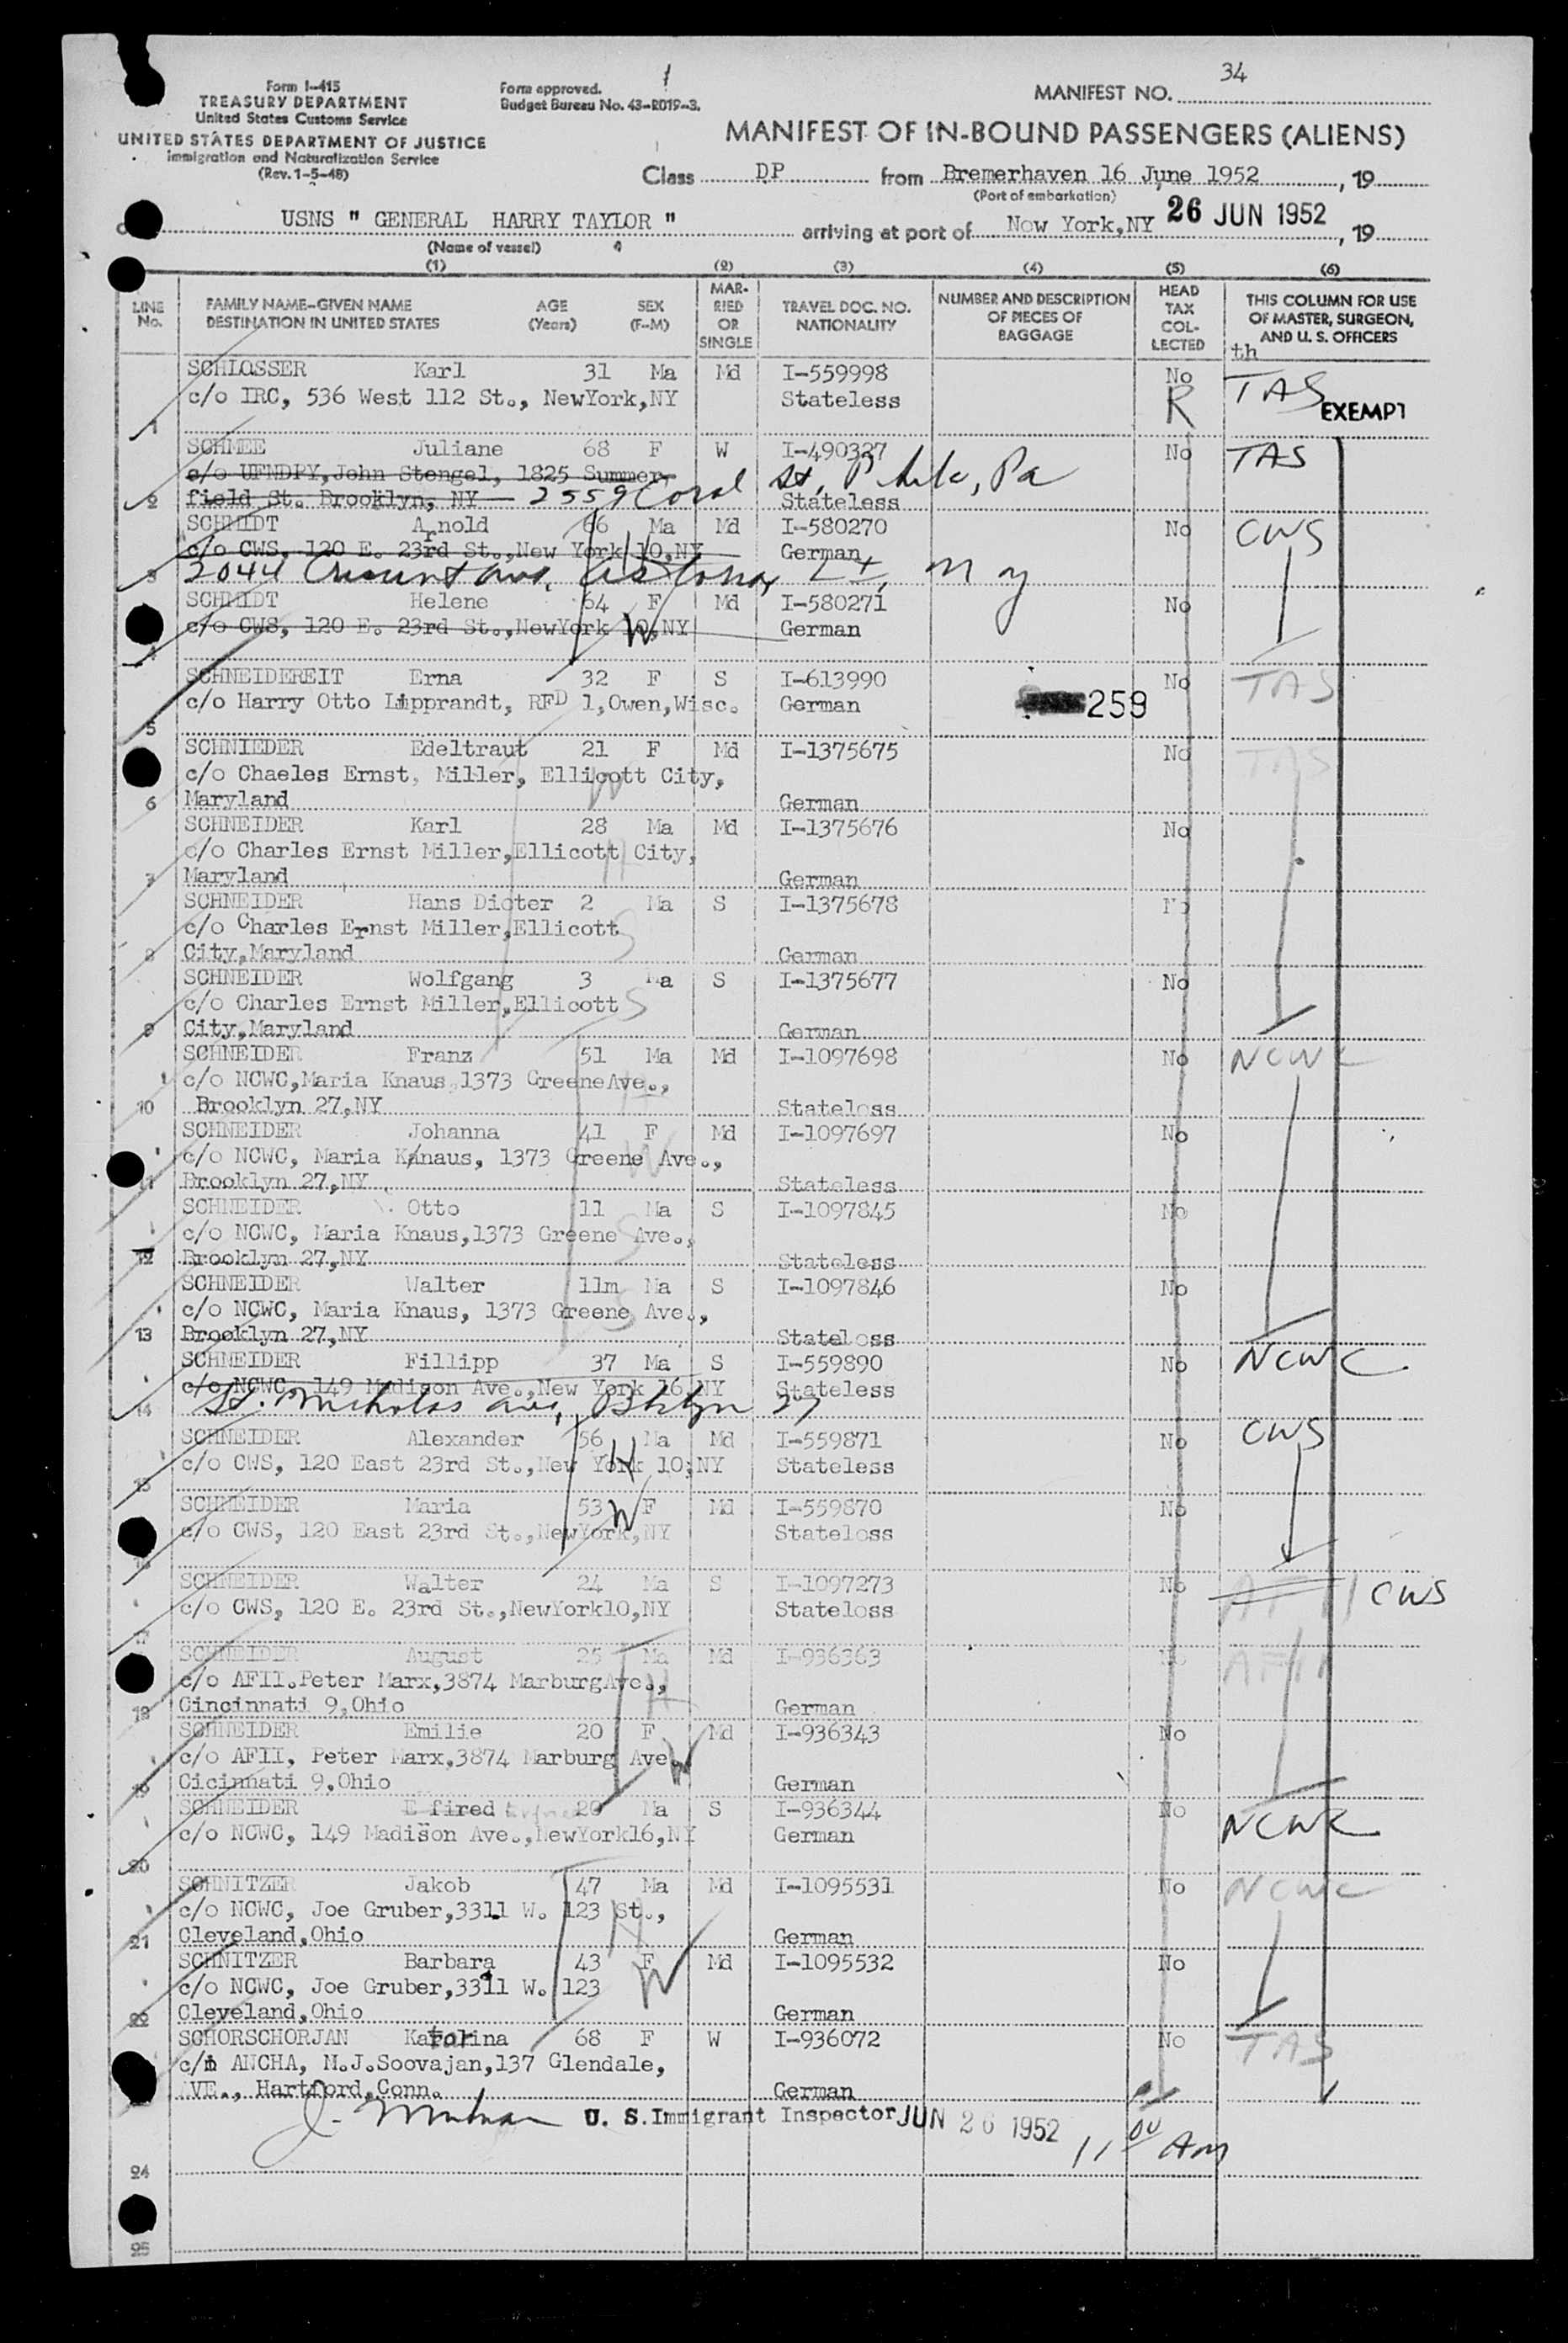 34
Form I-415
TREASURY DEPARTMENT
United States Customs Service
UNITED STATES DEPARTMENT OF JUSTICE
Immigration and Naturalization Service
(Rev. 1-5-48)
Form approved.
Budget Bureau No. 43-R019-3.
MANIFEST NO.
MANIFEST OF IN-BOUND PASSENGERS (ALIENS)
Class DP from Bremerhaven 16 June 1952, 19
(Port of embarkation)
USNS " GENERAL HARRY TAYLOR " arriving at port of New York,NY 26 JUN 1952, 19
(Name of vessel)
(1) (2) (3) (4) (5) (6)
LINE No. FAMILY NAME-GIVEN NAME DESTINATION IN UNITED STATES AGE (Years) SEX (F-M) MARRIED OR SINGLE TRAVEL DOC. NO. NATIONALITY NUMBER AND DESCRIPTION OF PIECES OF BAGGAGE HEAD TAX COLLECTED THIS COLUMN FOR USE OF MASTER, SURGEON, AND U. S. OFFICERS
th
SCHLOSSER Karl 31 Ma Md I-559998 No TAS
c/o IRC, 536 West 112 St., NewYork,NY Stateless R EXEMPT
1
SCHMEE Juliane 68 F W I-490327 No TAS
c/o UFNDPY,John Stengel, 1825 Summer-
2 field St. Brooklyn, NY 2559 Coral St, Phila, Pa Stateless
SCHMIDT Arnold 66 Ma Md I-580270 No CWS
c/o CWS, 120 E. 23rd St.,New York 10,NY German
3 2044 Crescent Ave, Astoria, LI, NY
SCHMIDT Helene 64 F W Md I-580271 No
c/o CWS, 120 E. 23rd St.,NewYork 10,NY German
4
SCHNEIDEREIT Erna 32 F S I-613990 No TAS
c/o Harry Otto Lipprandt, RFD 1,Owen,Wisc. German 259
5
SCHNIEDER Edeltraut 21 F Md I-1375675 No TAS
c/o Chaeles Ernst, Miller, Ellicott City, W
6 Maryland German
SCHNEIDER Karl 28 Ma Md I-1375676 No
c/o Charles Ernst Miller,Ellicott City, H
7 Maryland German
SCHNEIDER Hans Dieter 2 Ma S I-1375678 No
c/o Charles Ernst Miller,Ellicott S
8 City,Maryland German
SCHNEIDER Wolfgang 3 Ma S I-1375677 No
c/o Charles Ernst Miller,Ellicott S
9 City,Maryland German
SCHNEIDER Franz 51 Ma Md I-1097698 No NCWC
c/o NCWC,Maria Knaus,1373 GreeneAve., H
10 Brooklyn 27,NY Stateless
SCHNEIDER Johanna 41 F Md I-1097697 No
c/o NCWC, Maria Knaus, 1373 Greene Ave., W
11 Brooklyn 27,NY Stateless
SCHNEIDER Otto 11 Ma S I-1097845 No
c/o NCWC, Maria Knaus,1373 Greene Ave., S
12 Brooklyn 27,NY Stateless
SCHNEIDER Walter 11m Ma S I-1097846 No
c/o NCWC, Maria Knaus, 1373 Greene Ave., S
13 Brooklyn 27,NY Stateless
SCHNEIDER Fillipp 37 Ma S I-559890 No NCWC
c/o NCWC, 149 Madison Ave.,New York 16,NY Stateless
14 St. Nicholas Ave, Bklyn 27
SCHNEIDER Alexander 56 Ma Md I-559871 No CWS
c/o CWS, 120 East 23rd St.,New York 10,NY H Stateless
15
SCHNEIDER Maria 53 W F Md I-559870 No
c/o CWS, 120 East 23rd St.,NewYork,NY Stateless
16
SCHNEIDER Walter 24 Ma S I-1097273 No AFII CWS
c/o CWS, 120 E. 23rd St.,NewYork10,NY Stateless
17
SCHNEIDER August 25 Ma Md I-936363 No AFII
c/o AFII.Peter Marx,3874 MarburgAve., H
18 Cincinnati 9,Ohio German
SCHNEIDER Emilie 20 F Md I-936343 No
c/o AFII, Peter Marx,3874 Marburg Ave. W
19 Cicinnati 9,Ohio German
SCHNEIDER E fired 20 Ma S I-936344 No NCWC
c/o NCWC, 149 Madison Ave.,NewYork16,NY German
20
SCHNITZER Jakob 47 Ma Md I-1095531 No NCWC
c/o NCWC, Joe Gruber,3311 W. 123 St., H
21 Cleveland,Ohio German
SCHNITZER Barbara 43 F Md I-1095532 No
c/o NCWC, Joe Gruber,3311 W. 123 W
22 Cleveland,Ohio German
SCHORSCHORJAN Katarina 68 F W I-936072 No TAS
c/o ANCHA, N.J.Soovajan,137 Glendale,
AVE., Hartford,Conn. German
U. S. Immigrant Inspector JUN 26 1952 11 00 AM
24
25